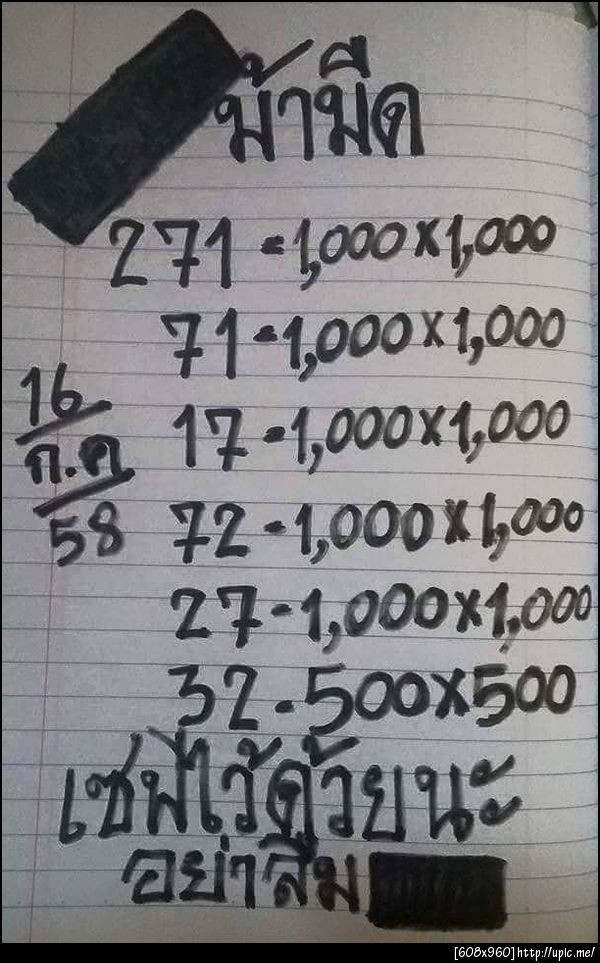 ม้ามืด
271 = 1,000x1,000
71 - 1,000x1,000
16/ก.ค/58
17 - 1,000x1,000
72 - 1,000x1,000
27 - 1,000x1,000
32 - 500x500
เซฟไว้ด้วยนะ
อย่าลืม
[608x960]http://upic.me/